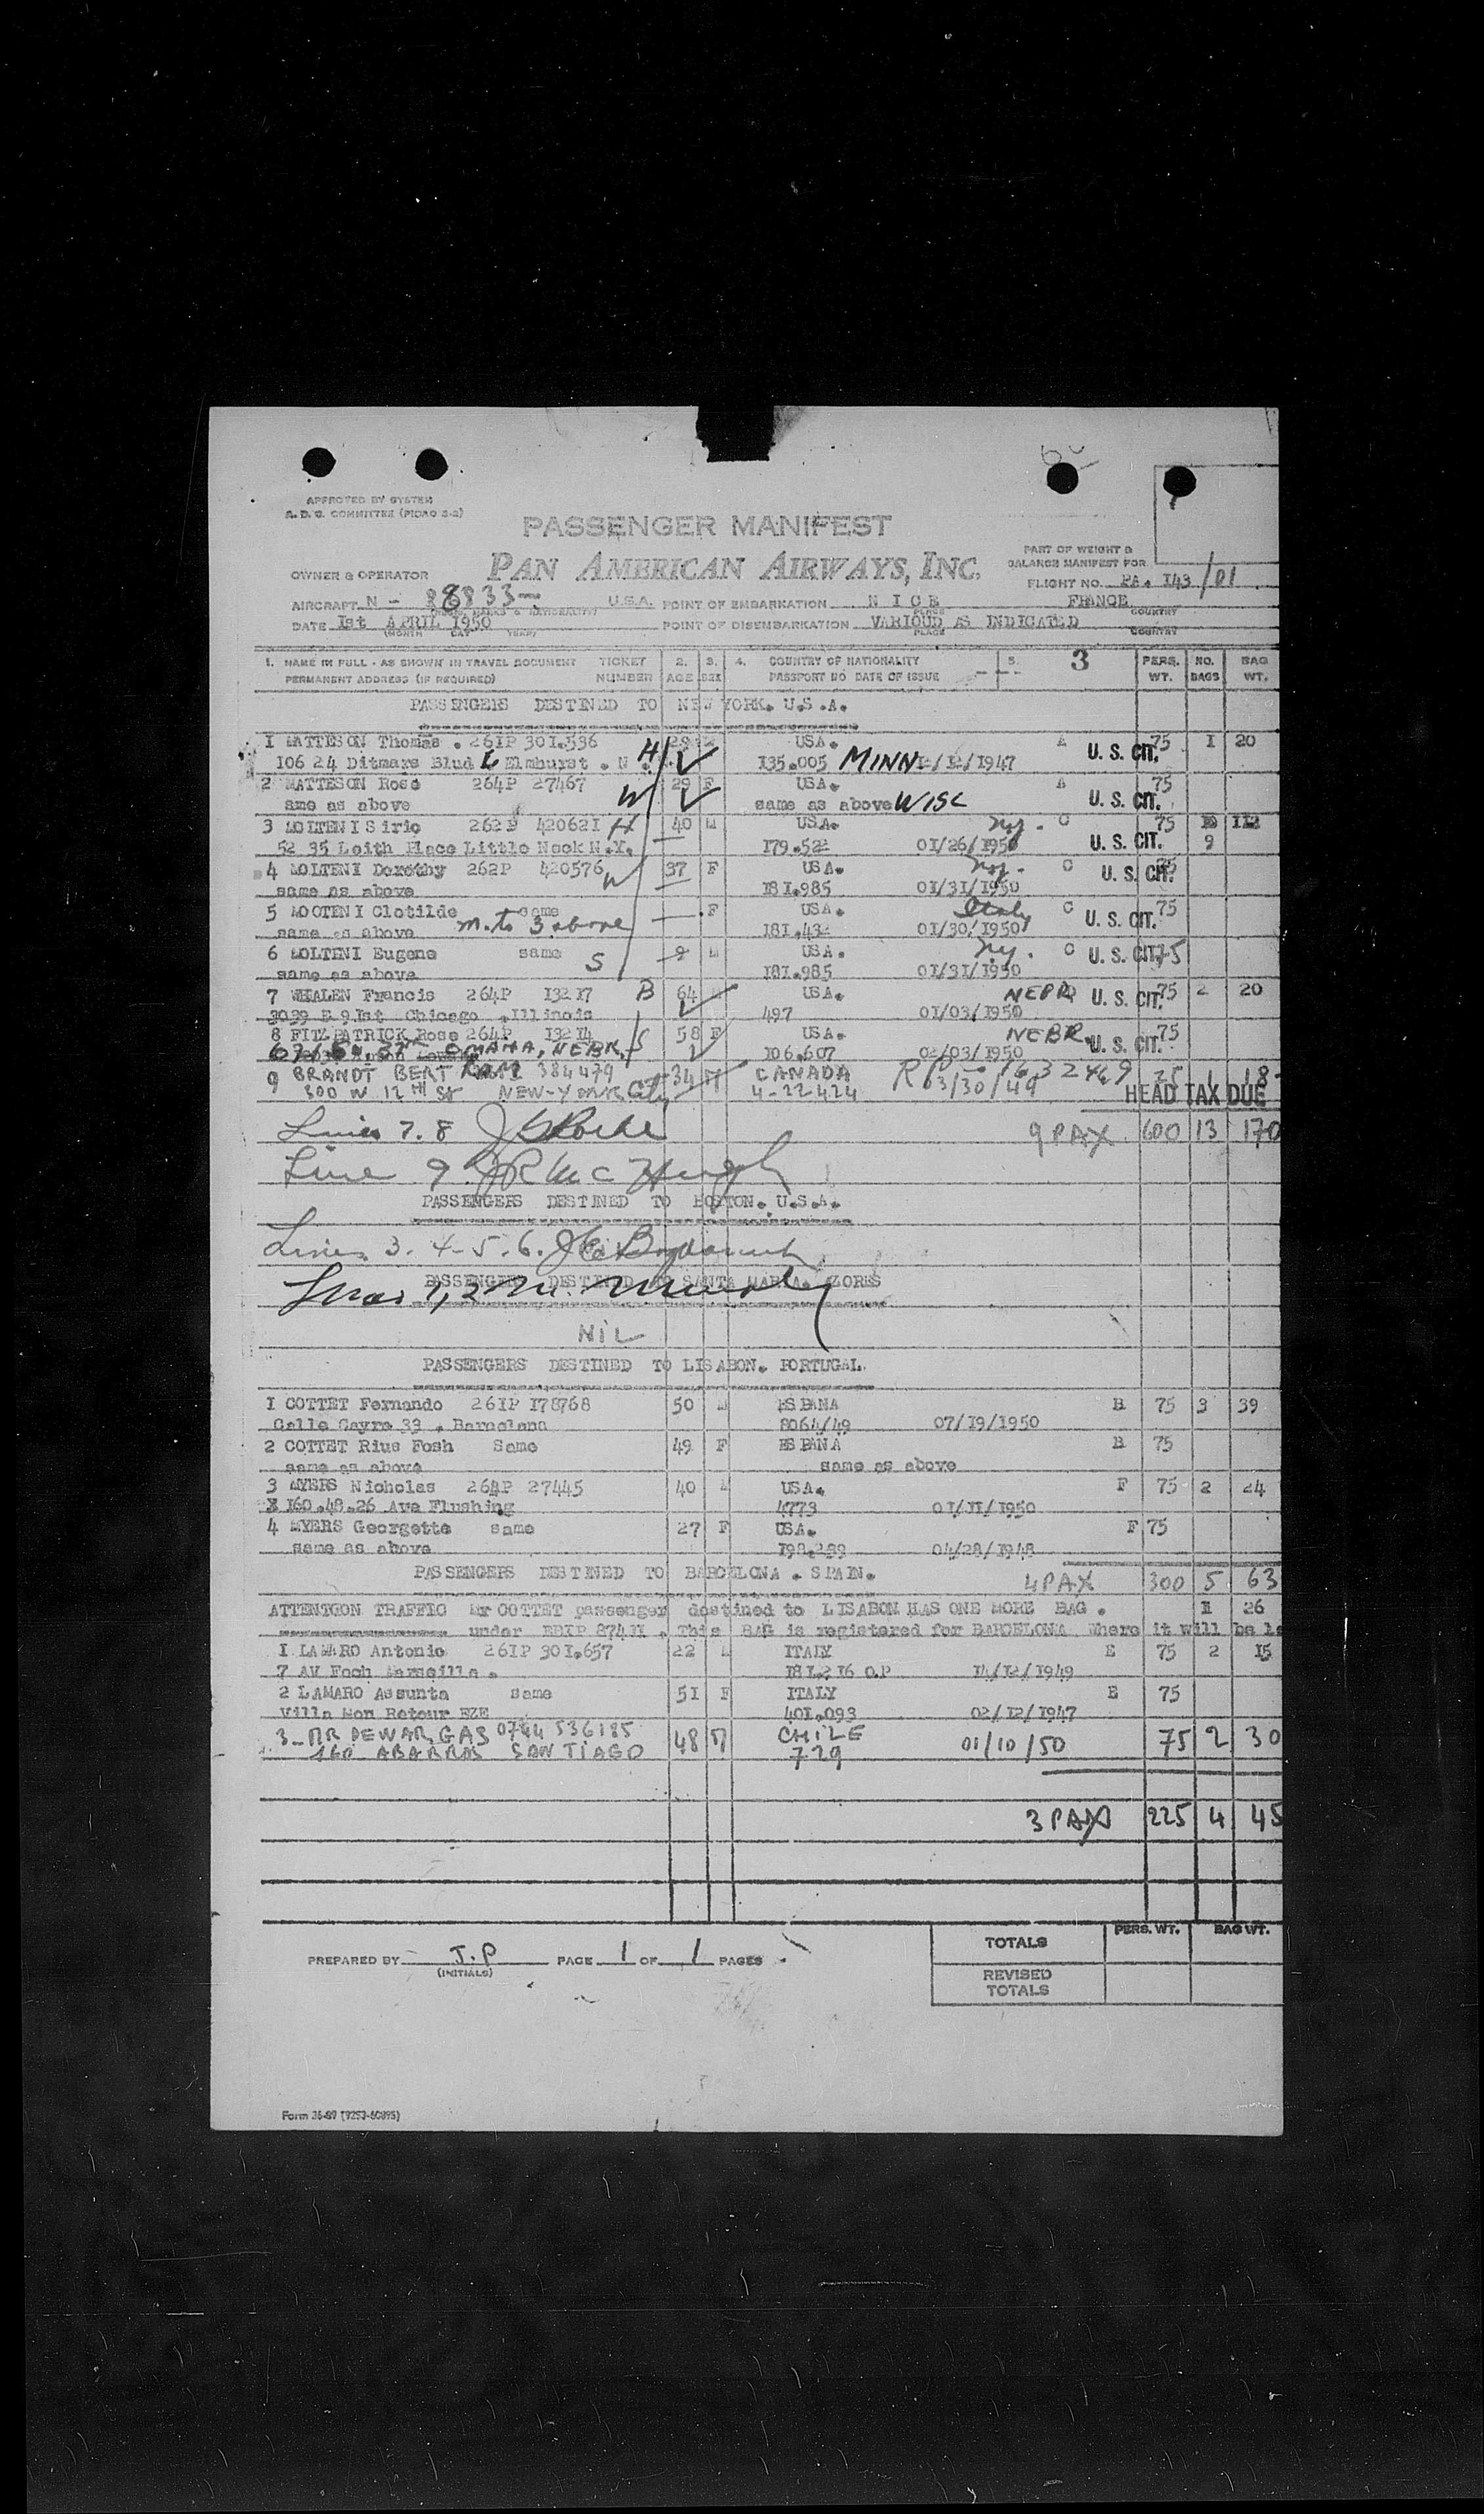 APPROVED BY SYSTEM
A. D. C. COMMITTEE (PICAO 3-2)
PASSENGER MANIFEST
PAN AMERICAN AIRWAYS, INC.
PART OF WEIGHT &
BALANCE MANIFEST FOR
OWNER & OPERATOR
FLIGHT NO. PA. 143/01
AIRCRAFT N - 88833 U.S.A. POINT OF EMBARKATION N I C E FRANCE
DATE 1st APRIL 1950 POINT OF DISEMBARKATION VARIOUD AS INDICATED
(MONTH DAY YEAR) PLACE COUNTRY
1. NAME IN FULL - AS SHOWN IN TRAVEL DOCUMENT TICKET 2. 3. 4. COUNTRY OF NATIONALITY 5. 3 PERS. NO. BAG
PERMANENT ADDRESS (IF REQUIRED) NUMBER AGE SEX PASSPORT NO DATE OF ISSUE WT. BAGS WT.
PASSENGERS DESTINED TO NEW YORK. U.S.A.
1 MATTESON Thomas . 261P 301.536 29 M USA. A U. S. CIT. 75 1 20
106 24 Ditmars Blud L Elmhurst . N H 135.005 MINN 12/12/1947
2 MATTESON Rose 264P 27467 W 29 F USA. A 75
ame as above same as above WISC U. S. CIT.
3 MOLTENI Sirio 262P 420621 H 40 M USA. N.Y. C 75 112
52 35 Leith Place Little Neck N.Y. 179.522 01/26/1950 U. S. CIT. 9
4 MOLTENI Dorothy 262P 420576 W 37 F USA. N.Y. C U. S. CIT. 75
same as above 181.985 01/31/1950
5 MOOTENI Clotilde same F USA. Italy C U. S. CIT. 75
same as above m. to 3 above 181.432 01/30/1950
6 MOLTENI Eugene same S 9 M USA. N.Y. C U. S. CIT. 75
same as above 181.985 01/31/1950
7 WHALEN Francis 264P 13217 B 64 USA. NEBR U. S. CIT. 75 2 20
3039 E 91st Chicago .Illinois 497 01/03/1950
8 FITZPATRICK Rose 264P 13214 S 58 F USA. NEBR. U. S. CIT. 75
OMAHA, NEBR. 106.607 02/03/1950
9 BRANDT BERT 384479 34 M CANADA RP 1632469 1 18
300 W 12TH St NEW-YORK City 4-22424 3/30/49 HEAD TAX DUE
Lines 7. 8 9 PAX 600 13 170
Line 9. JR Mc Hugh
PASSENGERS DESTINED TO BOSTON. U.S.A.
Lines 3. 4-5.6.
PASSENGERS DESTINED TO SANTA MARIA. AZORES
Lines 1,2
NIL
PASSENGERS DESTINED TO LISABON. PORTUGAL.
1 COTTET Fernando 261P 178768 50 M ESPANA B 75 3 39
Calle Gayre 33 . Barnelana 8064/49 07/19/1950
2 COTTET Rius Fosh Same 49 F ESPANA B 75
same as above same as above
3 MYERS Nicholas 264P 27445 40 M USA. F 75 2 24
X 160.48.26 Ave Flushing 4773 01/11/1950
4 MYERS Georgette same 27 F USA. F 75
same as above 198.289 04/28/1948
PASSENGERS DESTINED TO BARCELONA . SPAIN. 4 PAX 300 5 63
ATTENTGON TRAFFIC Mr COTTET passenger destined to LISABON HAS ONE MORE BAG . 1 26
under EBIP 87411 . This BAG is registered for BARCELONA Where it will be
1 LAMARO Antonio 261P 301.657 22 M ITALY E 75 2 15
7 AV Foch Marseille . 181216 O.P 14/12/1949
2 LAMARO Assunta same 51 F ITALY E 75
Villa Mon Retour EZE 401.093 02/12/1947
3_ MR DEWAR GAS 0744 536185 48 M CHILE 75 2 30
160 SANTIAGO 729 01/10/50
3 PAX 225 4 45
PERS. WT. BAG WT.
TOTALS
PREPARED BY J.P PAGE 1 OF 1 PAGES
(INITIALS)
REVISED
TOTALS
Form 36-89 (9253-60895)